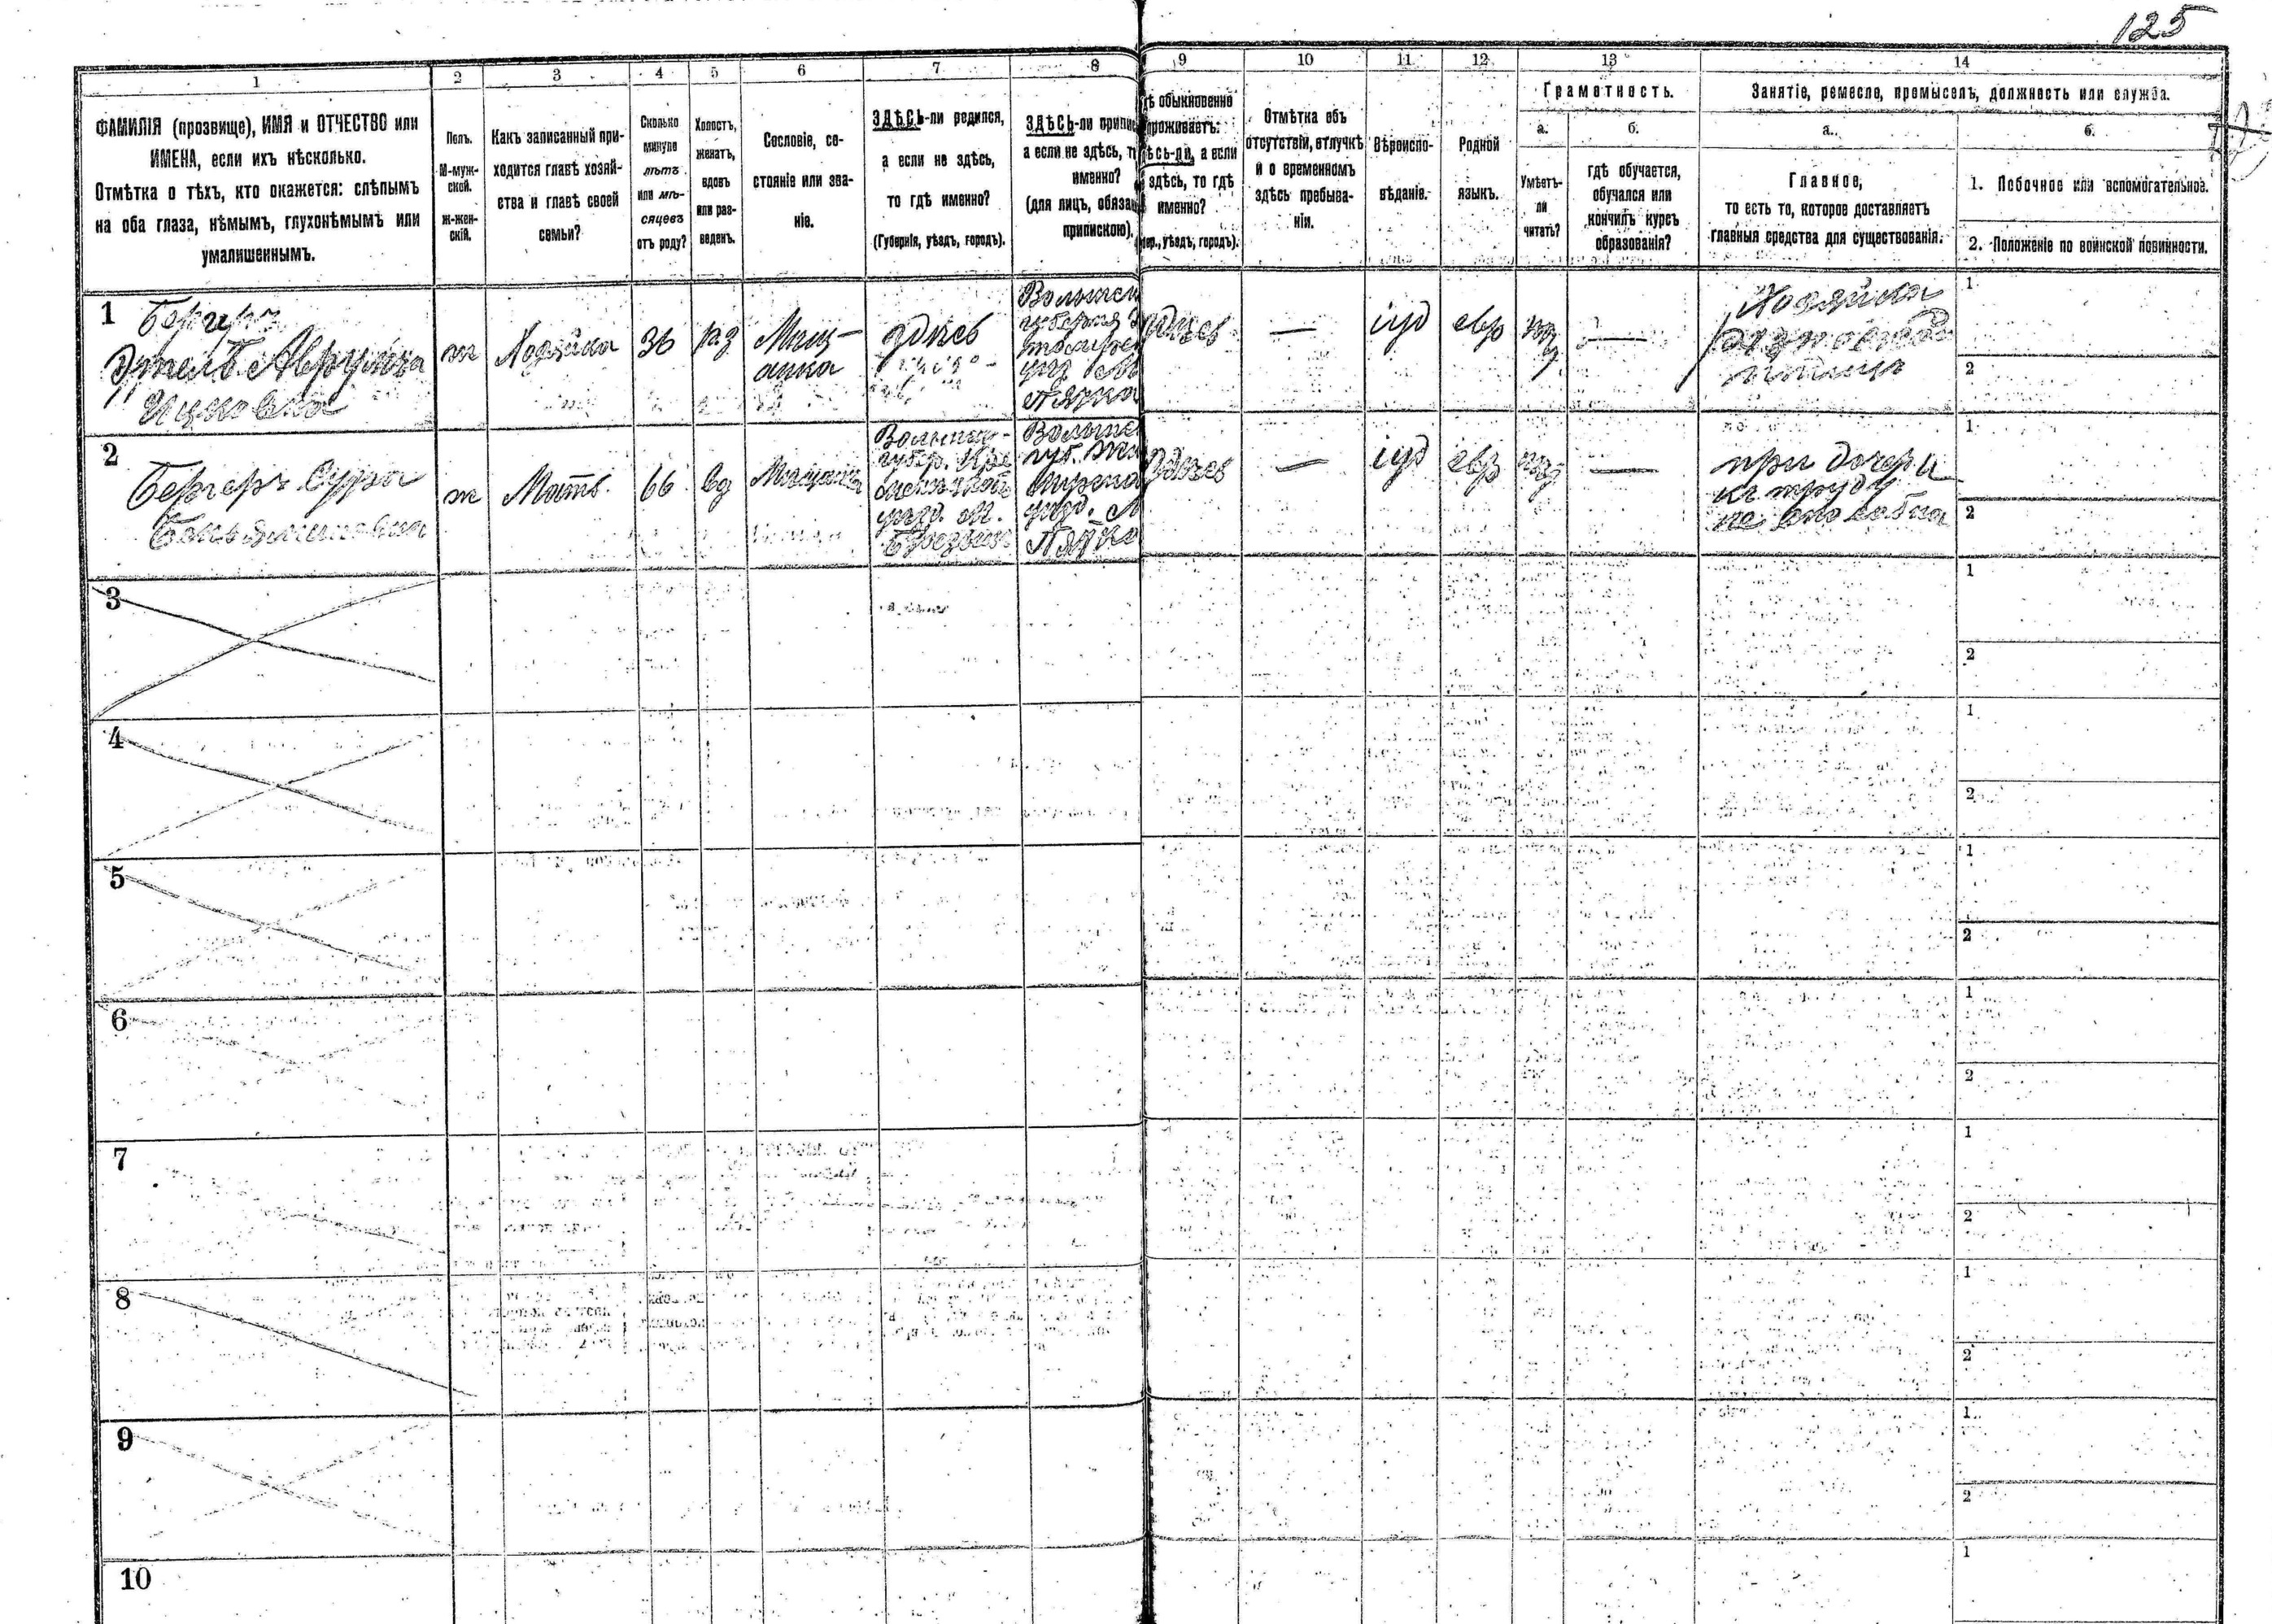 125
1
2
3
4
5
6
7
8
9
10
11
12
13
14
ФАМИЛІЯ (прозвище), ИМЯ и ОТЧЕСТВО или
ИМЕНА, если ихъ нѣсколько.
Отмѣтка о тѣхъ, кто окажется: слѣпымъ
на оба глаза, нѣмымъ, глухонѣмымъ или
умалишеннымъ.
Полъ.
М-муж-
ской.
ж-жен-
скій.
Какъ записанный при-
ходится главѣ хозяй-
ства и главѣ своей
семьи?
Сколько
минуло
лѣтъ
или мѣ-
сяцевъ
отъ роду?
Холостъ,
женатъ,
вдовъ
или раз-
веденъ.
Сословіе, со-
стояніе или зва-
ніе.
ЗДѢСЬ-ли родился,
а если не здѣсь,
то гдѣ именно?
(Губернія, уѣздъ, городъ).
ЗДѢСЬ-ли припи
а если не здѣсь, т
именно?
(для лицъ, обязан
припискою).
дѣ обыкновенно
проживаетъ:
ѣсь-ли, а если
здѣсь, то гдѣ
именно?
уѣздъ, городъ).
Отмѣтка объ
отсутствіи, отлучкѣ
и о временномъ
здѣсь пребыва-
ніи.
Вѣроиспо-
вѣданіе.
Родной
языкъ.
Грамотность.
а.
Умѣетъ-
ли
читать?
б.
гдѣ обучается,
обучался или
кончилъ курсъ
образованія?
Занятіе, ремесло, промыселъ, должность или служба.
а.
Главное,
то есть то, которое доставляетъ
главныя средства для существованія.
б.
1. Побочное или вспомогательное.
2. Положеніе по воинской повинности.
1
Бергеръ
Этель
Ицковна
ж
Хозяйка
36
раз
Мещ-
анка
здѣсь
губернія
уѣз
здѣсь
—
іуд
евр
—
Хозяйка
1
2
2
Бергеръ Сура
Беньяминовна
ж
Мать
66
вд
Мещанка
губер. Кре
менецкой
уѣзд. м.
губ.
уѣзд. м
здѣсь
—
іуд
евр
—
при дочери
къ труду
не способна
1
2
3
1
2
4
1
2
5
1
2
6
1
2
7
1
2
8
1
2
9
1
2
10
1